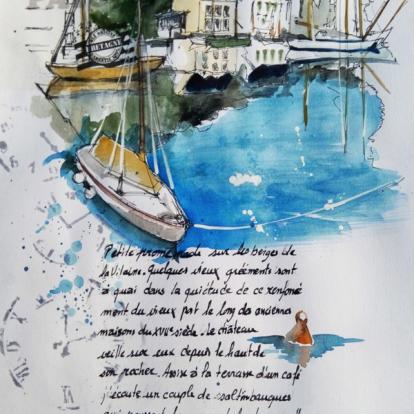 BRETAGNE
Petite promenade sur les berges de
la Vilaine. Quelques vieux gréements sont
à quai dans la quiétude de ce renfonce
ment du vieux port le long des anciennes
maisons du XVIIe siècle. Le château
veille sur eux depuis le haut de
son rocher. Assise à la terrasse d'un café
j'écoute un couple de saltimbanques